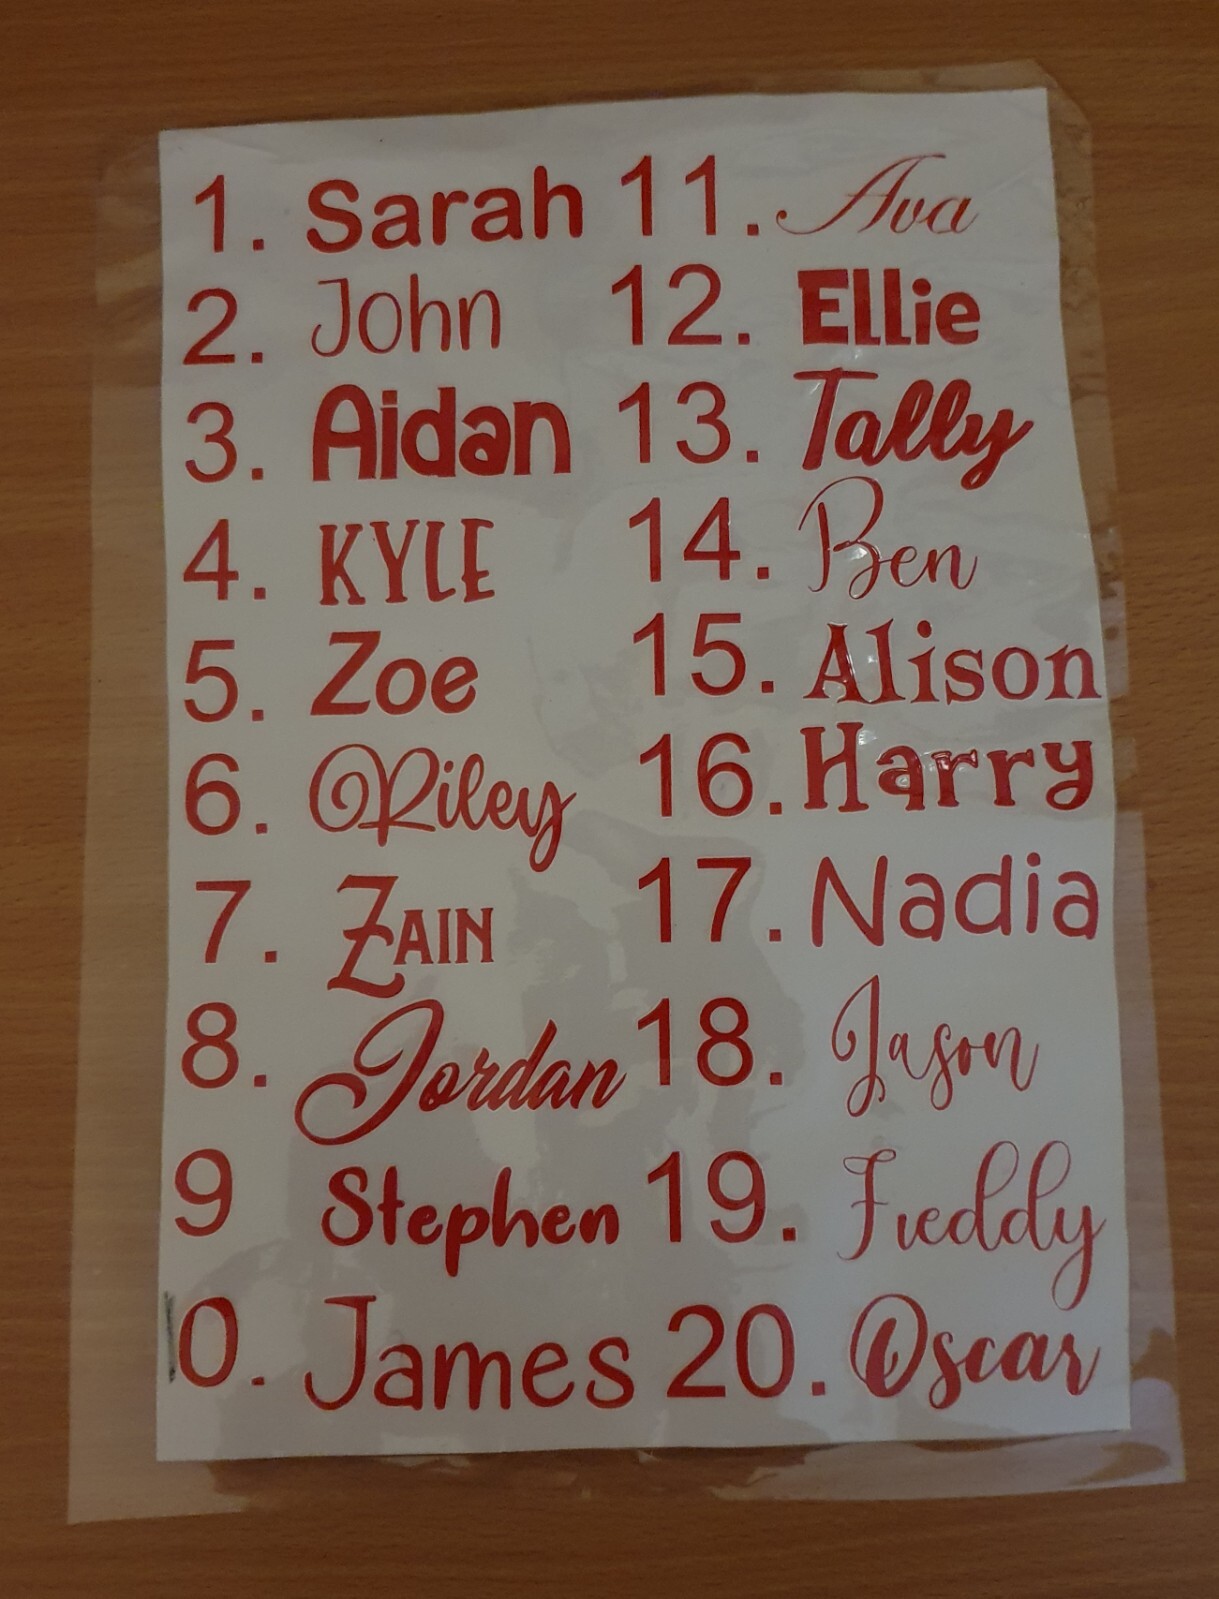 1. Sarah
2. John
3. Aidan
4. KYLE
5. Zoe
6. Riley
7. ZAIN
8. Jordan
9 Stephen
10. James
11. Ava
12. Ellie
13. Tally
14. Ben
15. Alison
16. Harry
17. Nadia
18. Jason
19. Freddy
20. Oscar